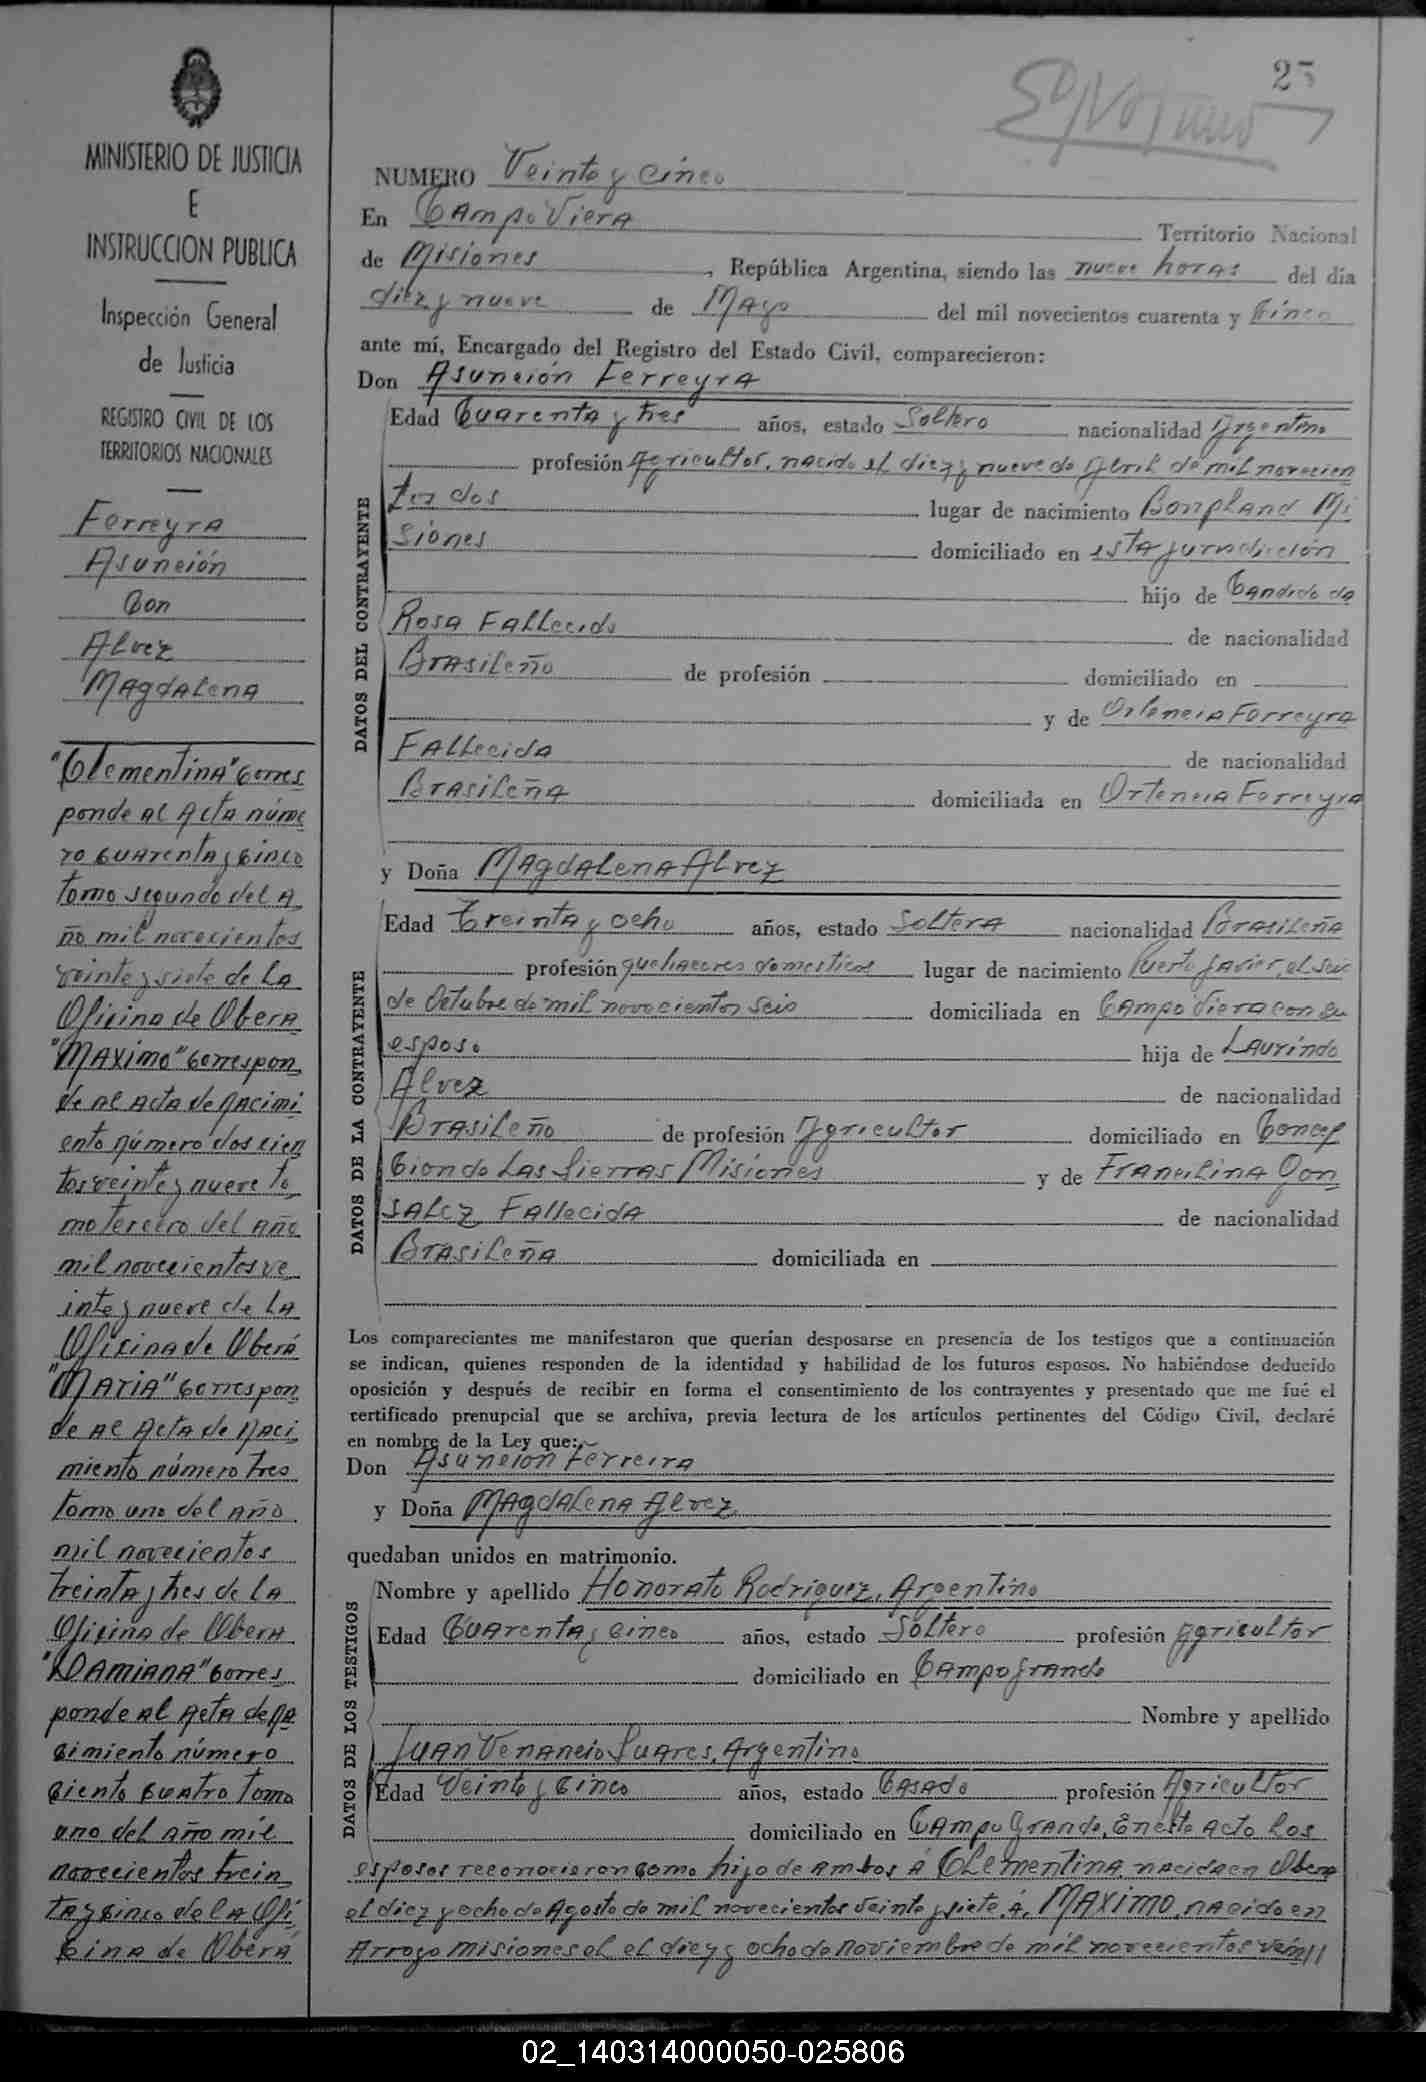 25
MINISTERIO DE JUSTICIA
E
INSTRUCCION PUBLICA
Inspección General
de Justicia
REGISTRO CIVIL DE LOS
TERRITORIOS NACIONALES
Ferreyra
Asunción
Con
Alvez
Magdalena
"Clementina" corres
ponde al Acta núme
ro cuarenta y cinco
tomo segundo del A
ño mil novecientos
veinte y siete de la
Oficina de Obera
"Maximo" correspon
de al acta de nacimi
ento número dos cien
tos veinte y nueve to
mo tercero del año
mil novecientos ve
inte y nueve de la
Oficina de Oberá
"Maria" correspon
de al Acta de naci
miento número tres
tomo uno del año
mil novecientos
treinta y tres de la
Oficina de Obera
"Damiana" corres
ponde al Acta de na
cimiento número
ciento cuatro tomo
uno del año mil
novecientos trein
ta y cinco de la Ofi
cina de Oberá
NUMERO Veinte y cinco
En Campo Viera Territorio Nacional
de Misiones, República Argentina, siendo las nueve horas del día
diez y nueve de Mayo del mil novecientos cuarenta y Cinco
ante mí, Encargado del Registro del Estado Civil, comparecieron:
Don Asunción Ferreyra
DATOS DEL CONTRAYENTE
Edad Cuarenta y tres años, estado Soltero nacionalidad Argentino
profesión Agricultor, nacido el diez y nueve de Abril de mil novecien
tos dos lugar de nacimiento Bonpland Mi
siones domiciliado en esta jurisdicción
hijo de Candido da
Rosa Fallecido de nacionalidad
Brasileño de profesión domiciliado en
y de Ortencia Ferreyra
Fallecida de nacionalidad
Brasileña domiciliada en Ortencia Ferreyra
y Doña Magdalena Alvez
DATOS DE LA CONTRAYENTE
Edad Treinta y ocho años, estado Soltera nacionalidad Brasileña
profesión quehaceres domesticos lugar de nacimiento Puerto Javier, el seis
de Octubre de mil novecientos seis domiciliada en Campo Viera con su
esposo hija de Laurindo
Alvez de nacionalidad
Brasileño de profesión Agricultor domiciliado en Concep
cion de Las Sierras Misiones y de Francilina Gon
salez Fallecida de nacionalidad
Brasileña domiciliada en
Los comparecientes me manifestaron que querían desposarse en presencia de los testigos que a continuación
se indican, quienes responden de la identidad y habilidad de los futuros esposos. No habiéndose deducido
oposición y después de recibir en forma el consentimiento de los contrayentes y presentado que me fué el
certificado prenupcial que se archiva, previa lectura de los artículos pertinentes del Código Civil, declaré
en nombre de la Ley que:
Don Asuncion Ferreira
y Doña Magdalena Alvez
quedaban unidos en matrimonio.
DATOS DE LOS TESTIGOS
Nombre y apellido Honorato Rodriguez, Argentino
Edad Cuarenta y cinco años, estado Soltero profesión Agricultor
domiciliado en Campo Grande
Nombre y apellido
Juan Venancio Suares, Argentino
Edad Veinte y Cinco años, estado Casado profesión Agricultor
domiciliado en Campo Grande, En este acto los
esposos reconocieron como hijo de ambos á Clementina nacida en Obera
el diez y ocho de Agosto de mil novecientos veinte y siete, á, Maximo, nacido en
Arroyo Misiones el el diez y ocho de noviembre de mil novecientos vein//
02_140314000050-025806